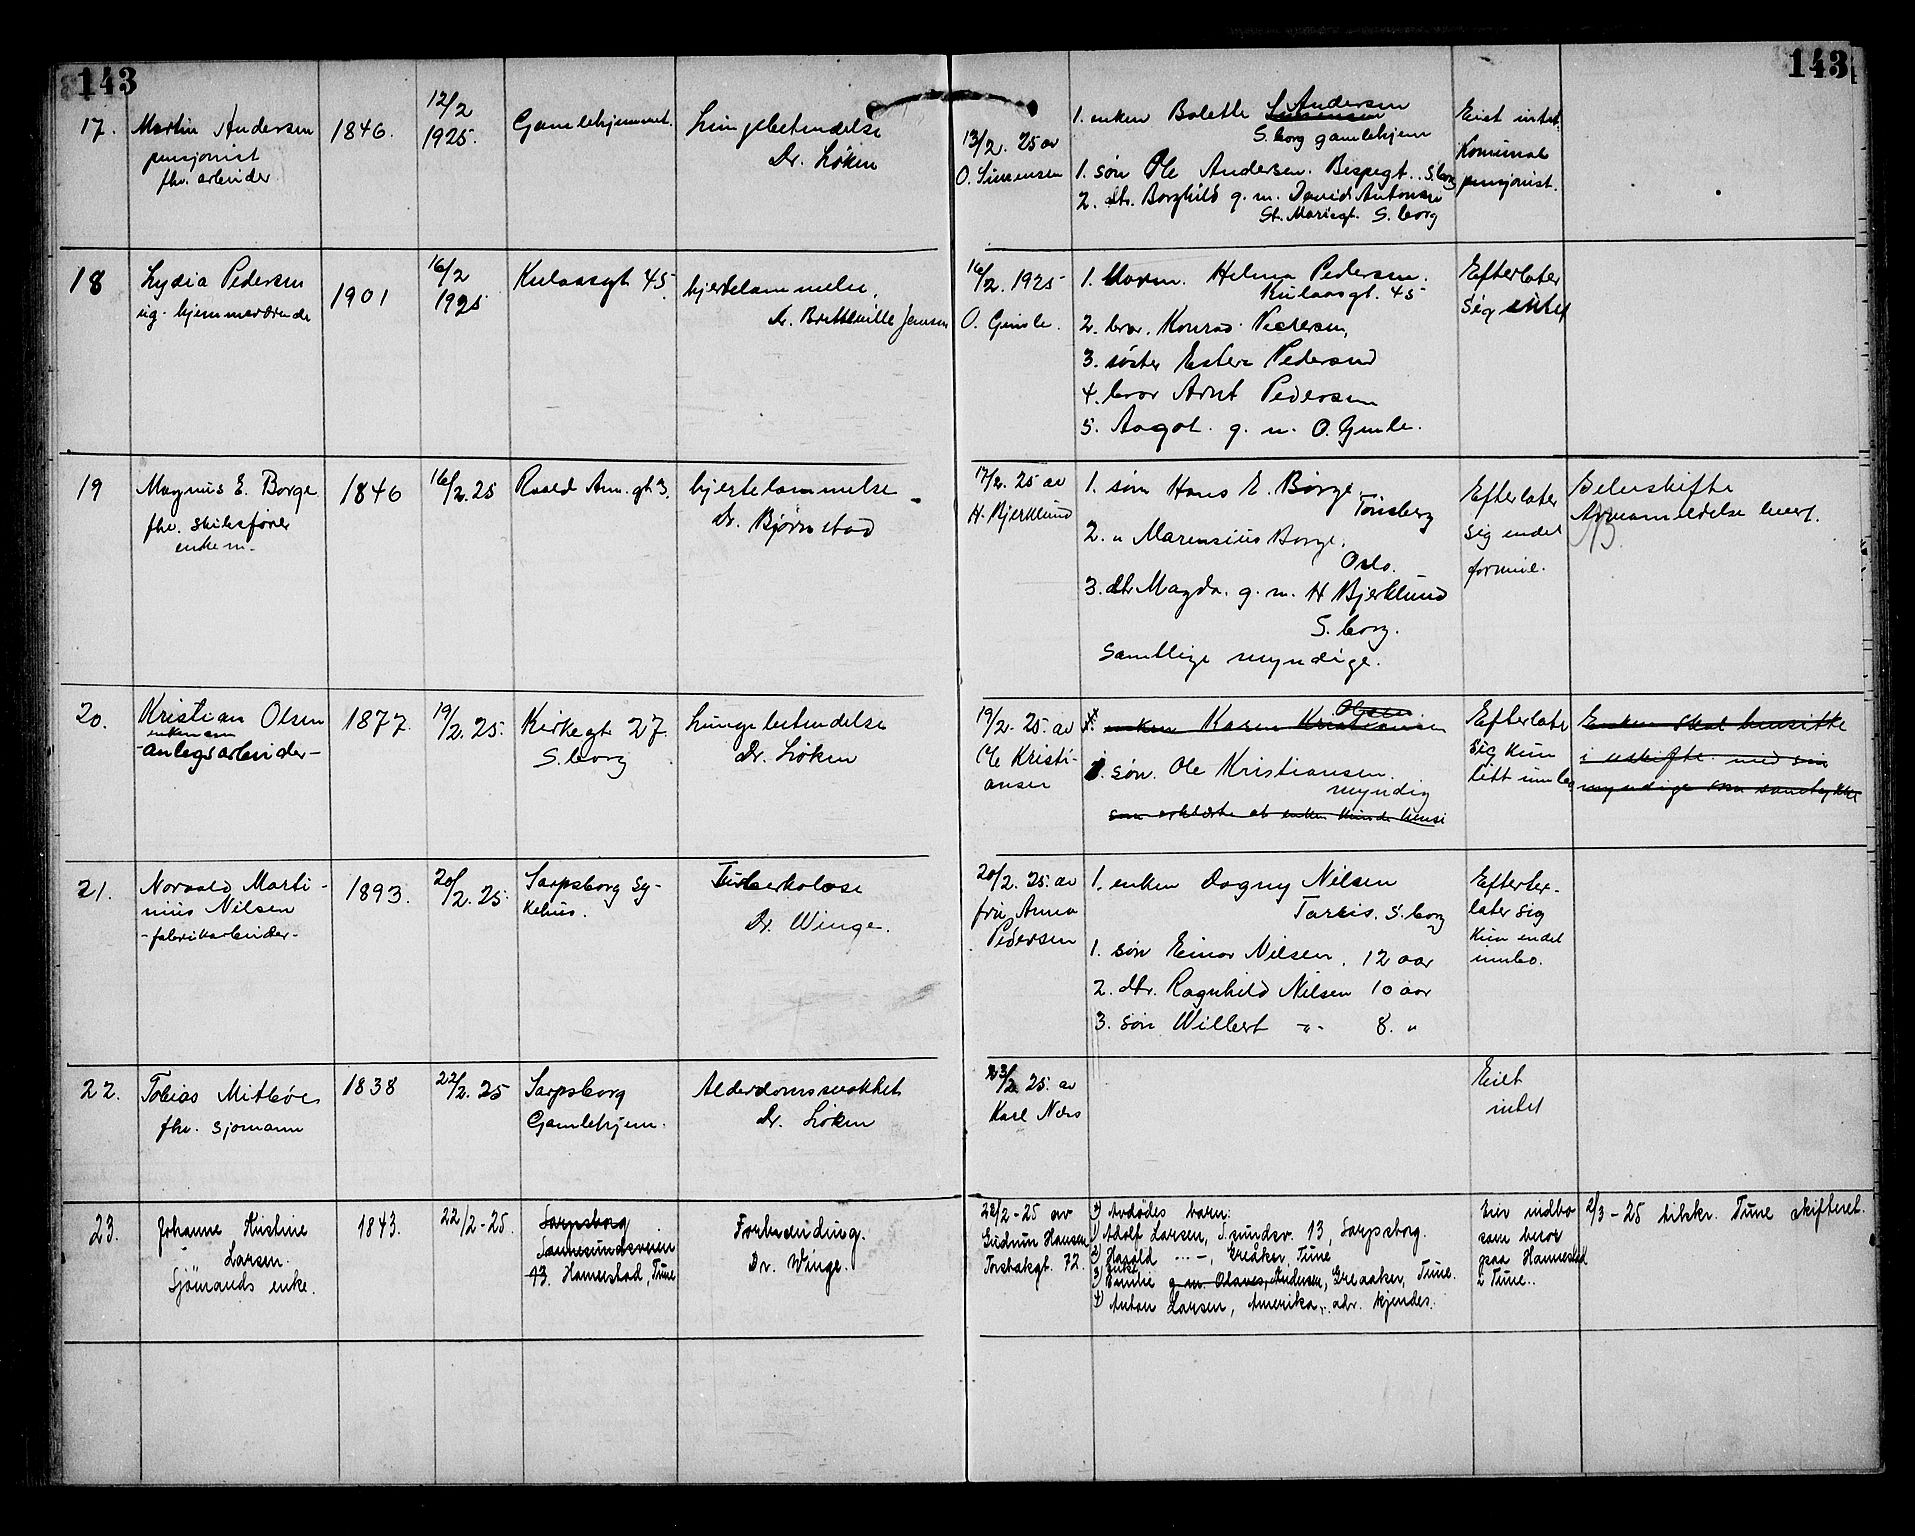 143
143
17.
Martin Andersen
pensjonist
fhv. arbeider
1846.
12/2
1925.
Gamlehjemmet.
Lungebetendelse
Dr. Løken
13/2. 25 av
O. Simensen
1. enken Bolette Andersen
S.borg gamlehjem
1. søn Ole Andersen. Bispegt. S.borg
2. dtr. Borghild g. m. David Antonsen
St. Mariegt. S.borg
Eiet intet.
Komunal
pensjonist.
18
Lydia Pedersen
ug. hjemmeværende
1901
16/2
1925
Kulaasgt 45
hjertelammelse.
Dr. Bretteville Jensen
16/2. 1925
O. Gimle.
1. Moren. Helma Pedersen.
Kulaasgt. 45
2. bror. Konrad Pedersen,
3. søster Ester Pedersen
4. bror Arnt Pedersen
5. Aagot. g. m. O. Gimle.
Efterlater
sig intet
19
Magnus E. Borge
fhv. skibsfører
enkem.
1846
16/2. 25
Roald Am. gt 3.
hjertelammelse
Dr. Bjørnstad
17/2. 25 av
H. Bjerklund
1. søn Hans E. Borge.
Tønsberg
2. " Marensius Borge.
Oslo.
3. dtr Magda. g. m. H Bjerklund
S.borg.
samtlige myndige.
Efterlater
sig endel
formue.
Eeneskifte
Arveanmeldelse levert.
20.
Kristian Olsen
enkemann
-anlegsarbeider-
1877.
19/2. 25.
Kirkegt 27.
S.borg
Lungebetendelse
Dr. Løken
19/2. 25. av
Ole Kristi-
ansen
enken Karen Kristiansen Olsen
1. søn. Ole Kristiansen.
myndig
som erklærte at enken kunde hensi
Efterlater
sig kun
litt innbo
Enken skal hensitte
i uskifte med sin
myndige søn samtykke
21.
Norvald Marti-
nius Nilsen
-fabrikarbeider-
1893.
20/2. 25.
Sarpsborg Sy-
kehus.
Tuberkolose
Dr. Winge.
20/2. 25. av
fru Anna
Pedersen
1. enken Dagny Nilsen
Tarris. S.borg
1. søn Einar Nilsen. 12 aar
2. dtr. Ragnhild Nilsen 10 aar
3. søn Willert -"- 8. "
Efterlater
sig
kun endel
innbo.
22.
Tobias Mitbøe
fhv. sjømann
1838
22/2. 25
Sarpsborg
Gamlehjem.
Alderdomssvakhet
Dr. Løken
23/2 25. av
Karl Næs
Eiet
intet
23.
Johanne Kristine
Larsen.
Sjømands enke.
1843.
22/2-25.
Sarpsborg
Sannesundsveien
13. Hannestad, Tune
Forbrænding.
Dr. Winge.
28/2-25 av
Gudrun Hansen
Torsbakgt. 72.
Avdødes barn:
1) Adolf Larsen, S.sundsv. 13, Sarpsborg.
2) Harald -"-, Greåker, Tune
3) Emilie enke g. m. Olaves Andersen, Greaaker, Tune.
4) Anton Larsen, Amerika, adr. kjendes.
Eier indbo
som beror
paa Hannestad
i Tune.
2/3-25 tilskr. Tune skifteret.